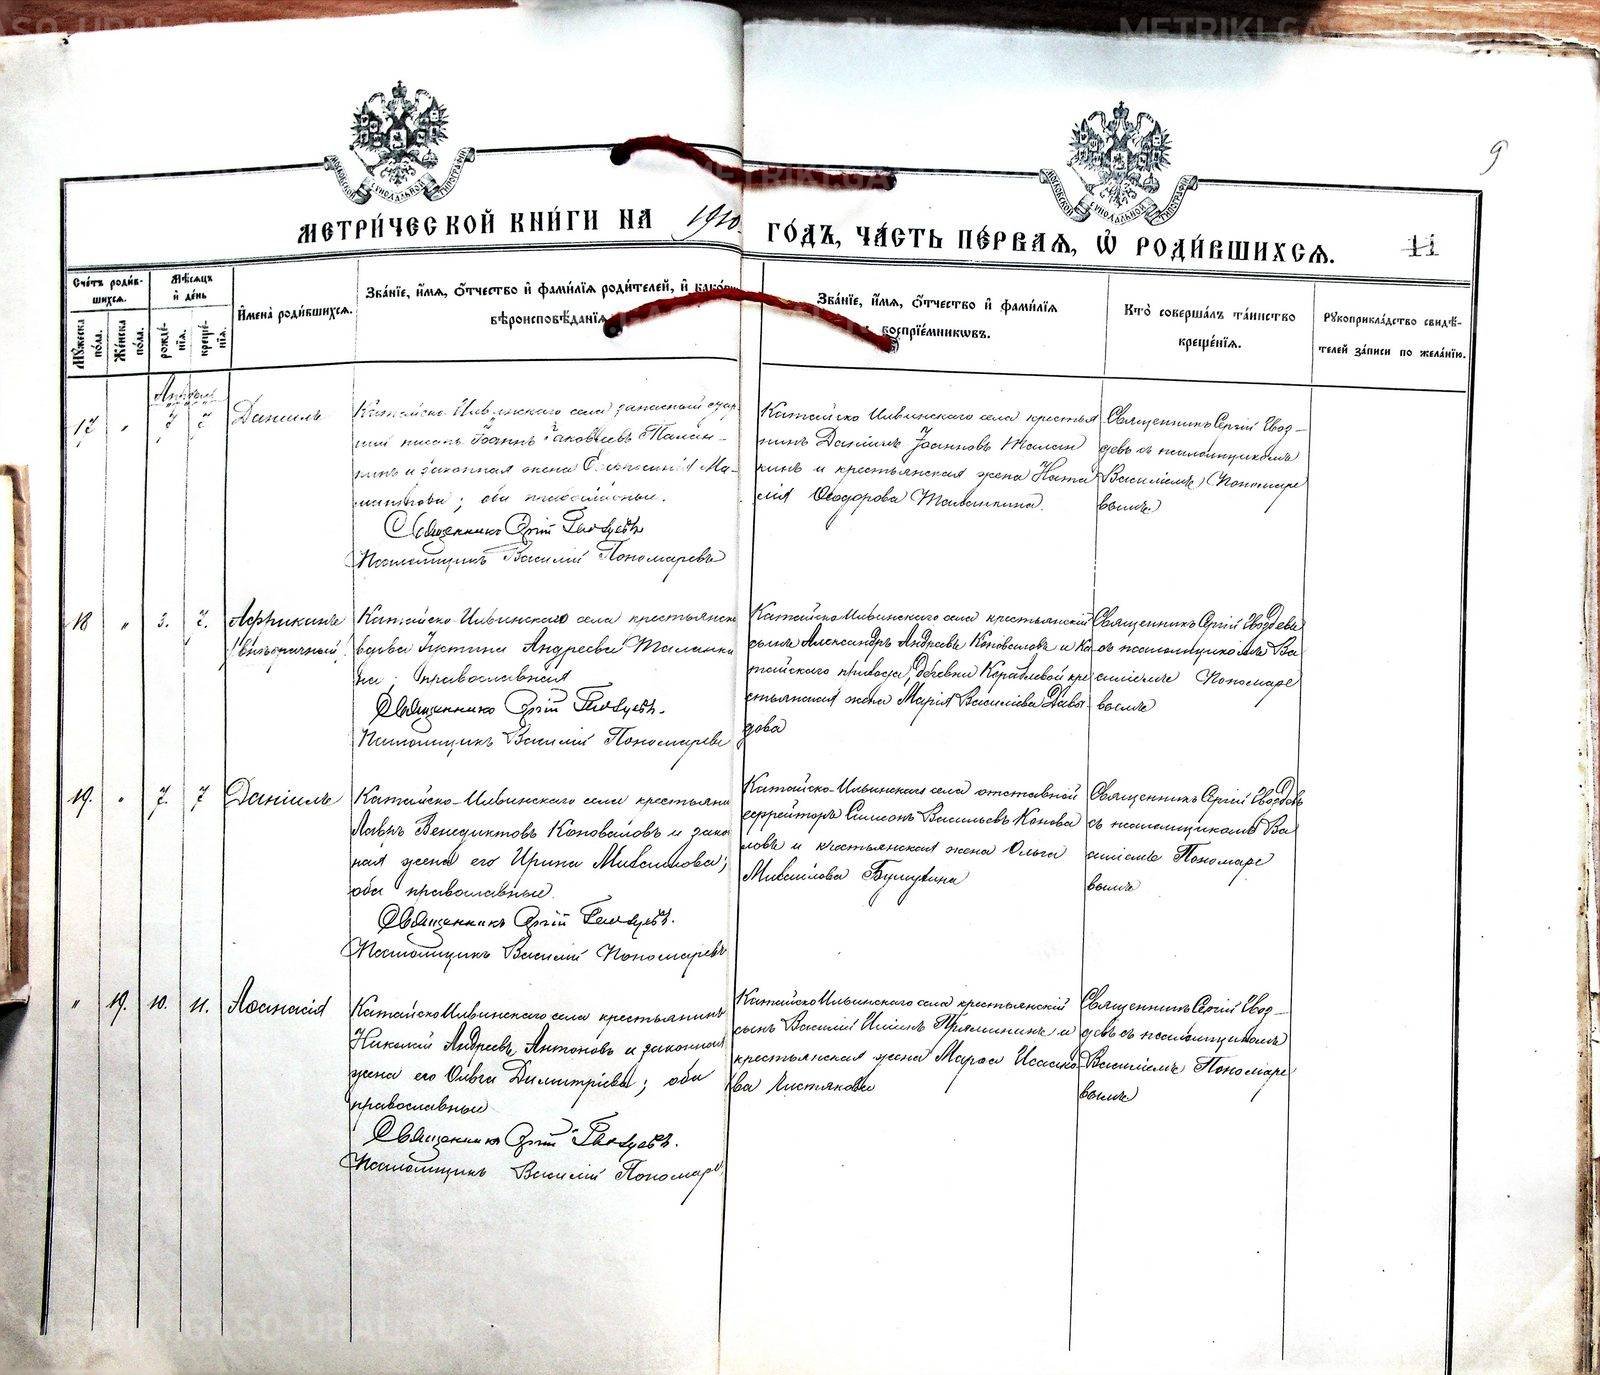 METRIKI.GASO-URAL.RU
9
МОСКОВСКОЙ СѴНОДАЛЬНОЙ ТИПОГРАФІИ
МОСКОВСКОЙ СѴНОДАЛЬНОЙ ТИПОГРАФІИ
МЕТРИ́ЧЕСКОЙ КНИ́ГИ НА 1910 ГО́ДЪ, ЧА́СТЬ ПЕ́РВАЯ, Ѡ҆ РОДИ́ВШИХСЯ.
11
Сче́тъ роди́в-
шихся.
Мꙋ́жеска по́ла.
Же́нска по́ла.
Мѣ́сяцъ и҆ де́нь
рожде́-нїя.
креще́-нїя.
И҆мена̀ роди́вшихся.
Зва́нїе, и҆́мя, ѻ҆́тчество и҆ фамѝлїя роди́телей, и҆ како́гѡ
вѣроисповѣ́данїя.
Зва́нїе, и҆́мя, ѻ҆́тчество и҆ фамѝлїя
воспрїе́мникѡвъ.
Кто̀ соверша́лъ та́инство
креще́нїя.
Рꙋкоприкла́дство свидѣ́-
телей за́писи по жела́нїю.
Апрѣль
17 " 7 7 Даніилъ
Катайско-Ильинскаго села запасный стар-
шій писарь Іоаннъ Іаковлевъ Талан-
кинъ и законная жена
оба православные.
Священникъ Сергій Гвоздевъ
Псаломщикъ Василій Пономаревъ
Катайско Ильинскаго села крестья
нинъ Даніилъ Іоанновъ Талан
кинъ и крестьянская жена Ната
лія Ѳеодорова Талашкина.
Священникъ Сергій Гвоз-
девъ съ псаломщикомъ
Василіемъ Пономаре
вымъ
18 " 3. 7. Африканъ
Катайско-Ильинскаго села крестьянск
вдова Андреева Таланки
на; православная
Священникъ Сергій Гвоздевъ.
Псаломщикъ Василій Пономаревъ
Катайско Ильинскаго села крестьянскій
сынъ Александръ Андреевъ Коноваловъ и Ка
тайскаго прихода, деревни Кораблевой кре
стьянская жена Марія Василіева Давы-
дова
Священникъ Сергій Гвоздевъ
съ псаломщикомъ Ва
силіемъ Пономаре
вымъ
19. " 7. 7 Даніилъ
Катайско-Ильинскаго села крестьяни
Павлъ Венедиктовъ Коноваловъ и зако
ная жена его Ирина Михаилова;
оба православные.
Священникъ Сергій Гвоздевъ.
Псаломщикъ Василій Пономаревъ
Катайско-Ильинскаго села отставной
ефрейторъ Симеонъ Васильевъ Конова
ловъ и крестьянская жена Ольга
Михаилова
Священникъ Сергій Гвоздевъ
съ псаломщикомъ Ва
силіемъ Пономаре
вымъ
" 19. 10. 11. Аѳанасія
Катайско Ильинскаго села крестьянинъ
Николай Андреевъ Антоновъ и законная
жена его Ольга Димитріева; оба
православные
Священникъ Сергій Гвоздевъ.
Псаломщикъ Василій Пономаре
Катайско Ильинскаго села крестьянскій
сынъ Василій Ильинъ Пряминынъ и
крестьянская жена Марѳа Исаако
ва Чистякова
Священникъ Сергій Гвоз-
девъ съ псаломщикомъ
Василіемъ Пономаре
вымъ
METRIKI.GASO-URAL.RU